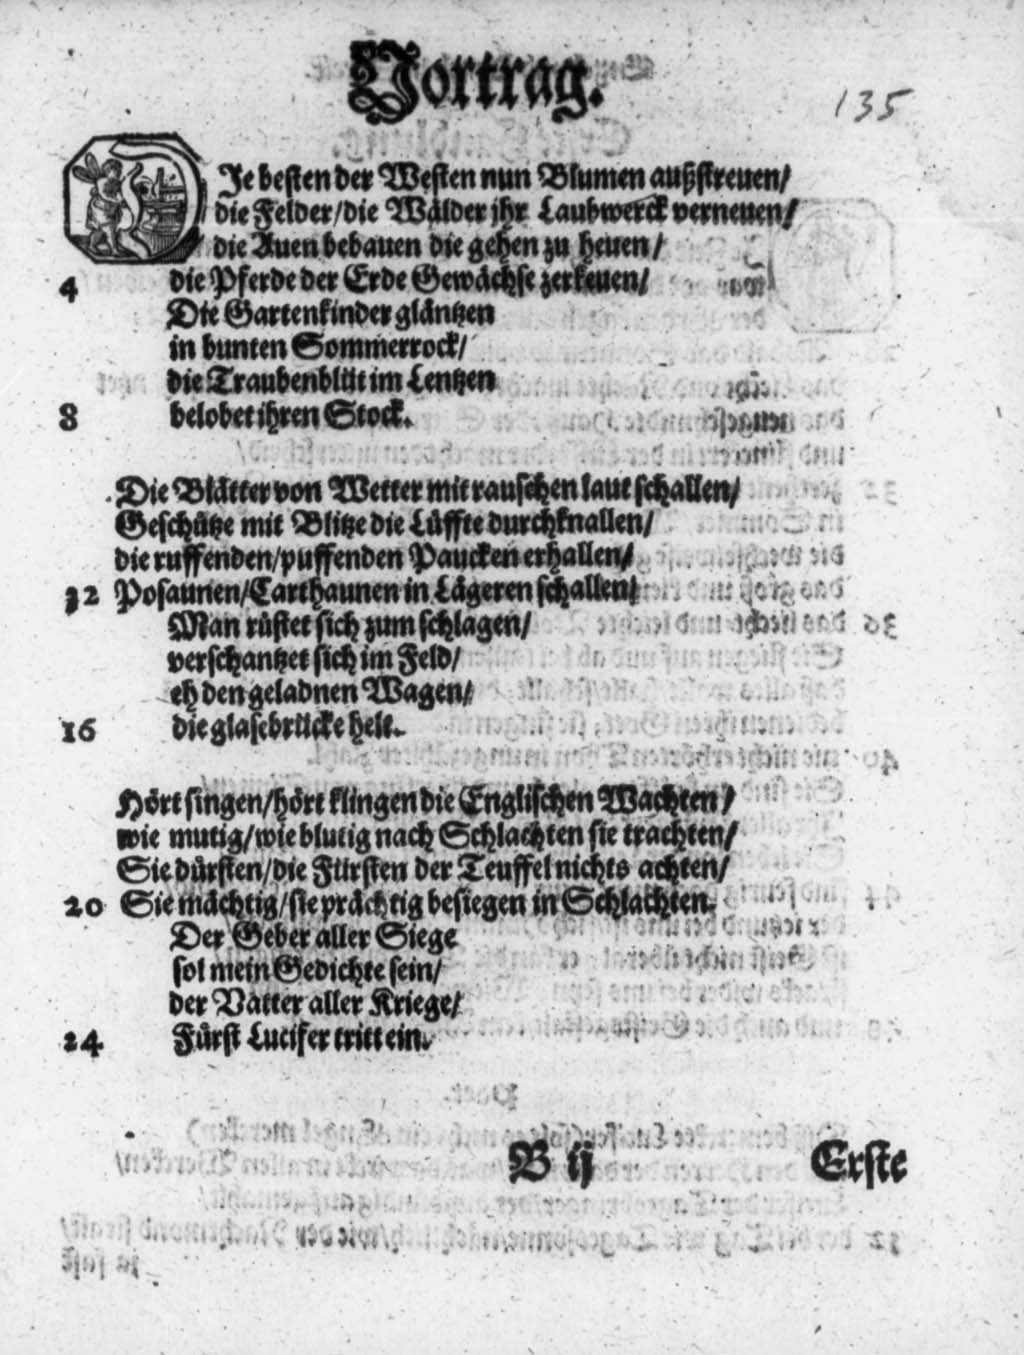 Vortrag.
135
DIe besten der Westen nun Blumen außstreuen/
die Felder/die Wälder jhr Laubwerck verneuen/
die Auen bebauen die gehen zu heuen/
4 die Pferde der Erde Gewächse zerkeuen/
Die Gartenkinder gläntzen
in bunten Sommerrock/
die Traubenblüt im Lentzen
8 belobet ihren Stock.
Die Blätter von Wetter mit rauschen laut schallen/
Geschütze mit Blitze die Lüffte durchknallen/
die ruffenden/puffenden Paucken erhallen/
32 Posaunen/Carthaunen in Lägeren schallen/
Man rüstet sich zum schlagen/
verschantzet sich im Feld/
eh den geladnen Wagen/
16 die glasebrücke helt.
Hört singen/hört klingen die Englischen Wachten/
wie mutig/wie blutig nach Schlachten sie trachten/
Sie dürsten/die Fürsten der Teuffel nichts achten/
20 Sie mächtig/sie prächtig besiegen in Schlachten.
Der Geber aller Siege
sol mein Gedichte sein/
der Vatter aller Kriege/
24 Fürst Lucifer tritt ein.
B ij Erste